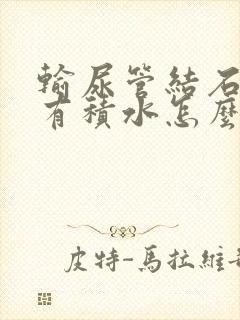 輸尿管結石
有積水怎麼
皮特-馬拉維